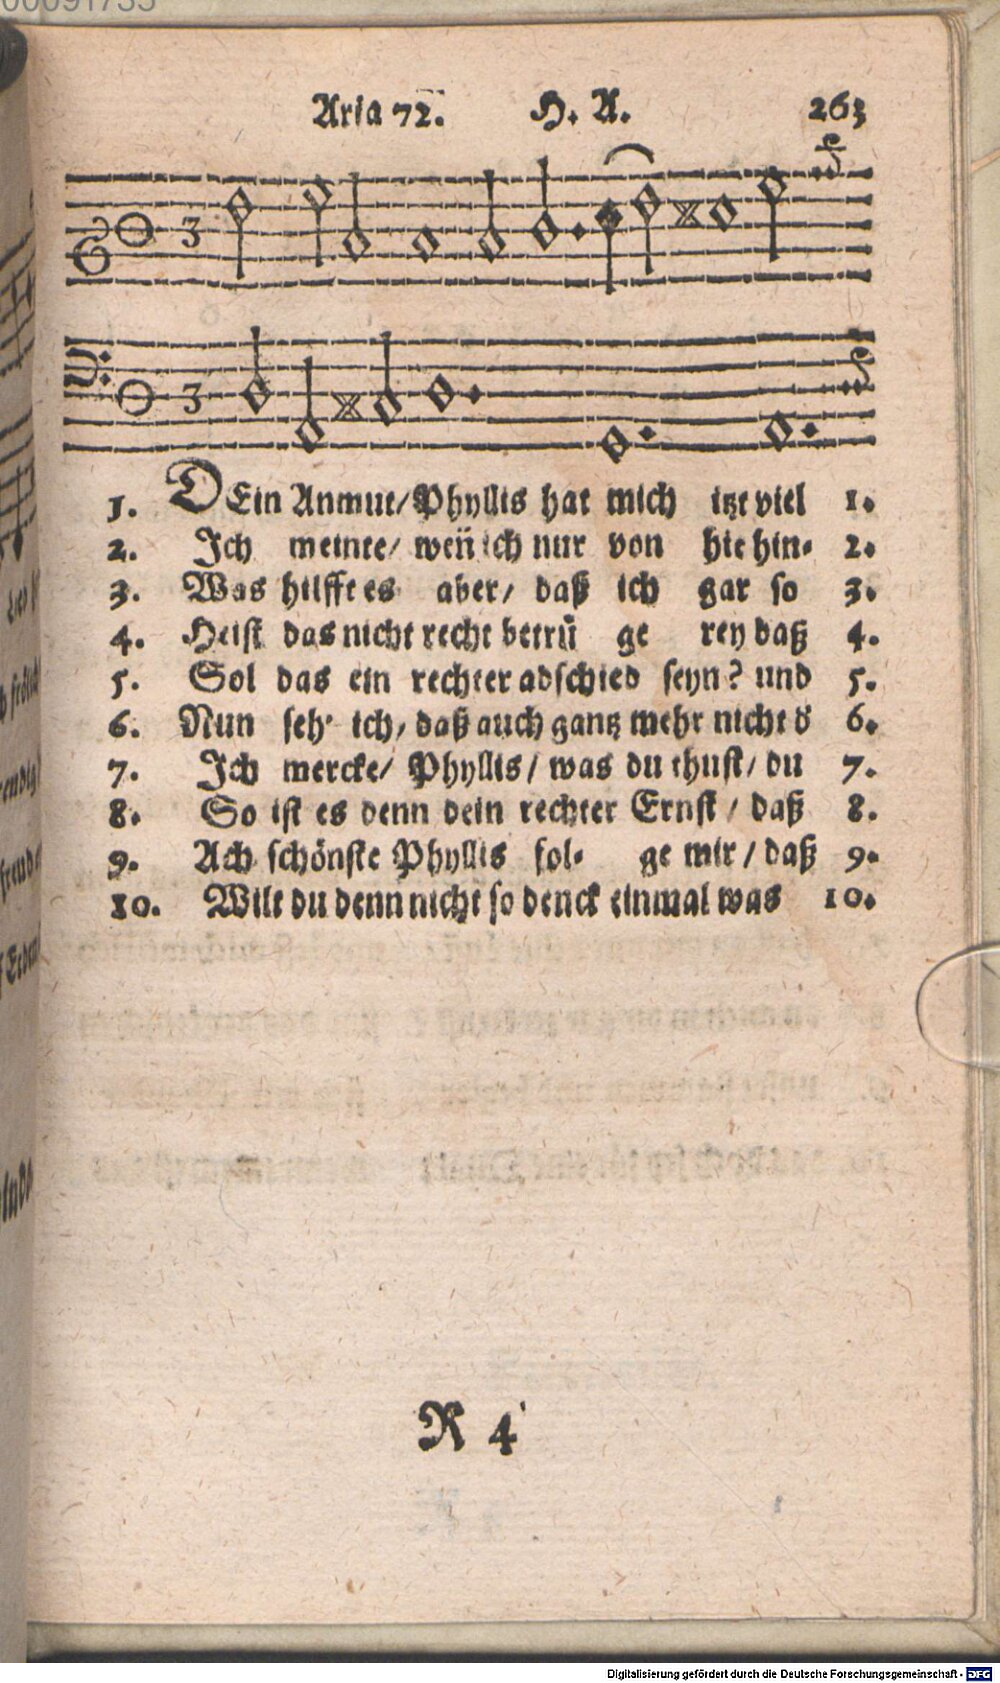 00091735
Aria 72. H. A. 263
3
3
1. DEin Anmut/Phyllis hat mich itzt viel 1.
2. Ich meinte/ weñ ich nur von hie hin- 2.
3. Was hilfft es aber/ daß ich gar so 3.
4. Heist das nicht recht betrü ge rey daß 4.
5. Sol das ein rechter adschied seyn? und 5.
6. Nun seh' ich, daß auch gantz mehr nicht d 6.
7. Ich mercke/ Phyllis/ was du thust/ du 7.
8. So ist es denn dein rechter Ernst/ daß 8.
9. Ach schönste Phyllis fol- ge mir/ daß 9.
10. Wilt du denn nicht so denck einmal was 10.
R 4
Digitalisierung gefördert durch die Deutsche Forschungsgemeinschaft - DFG